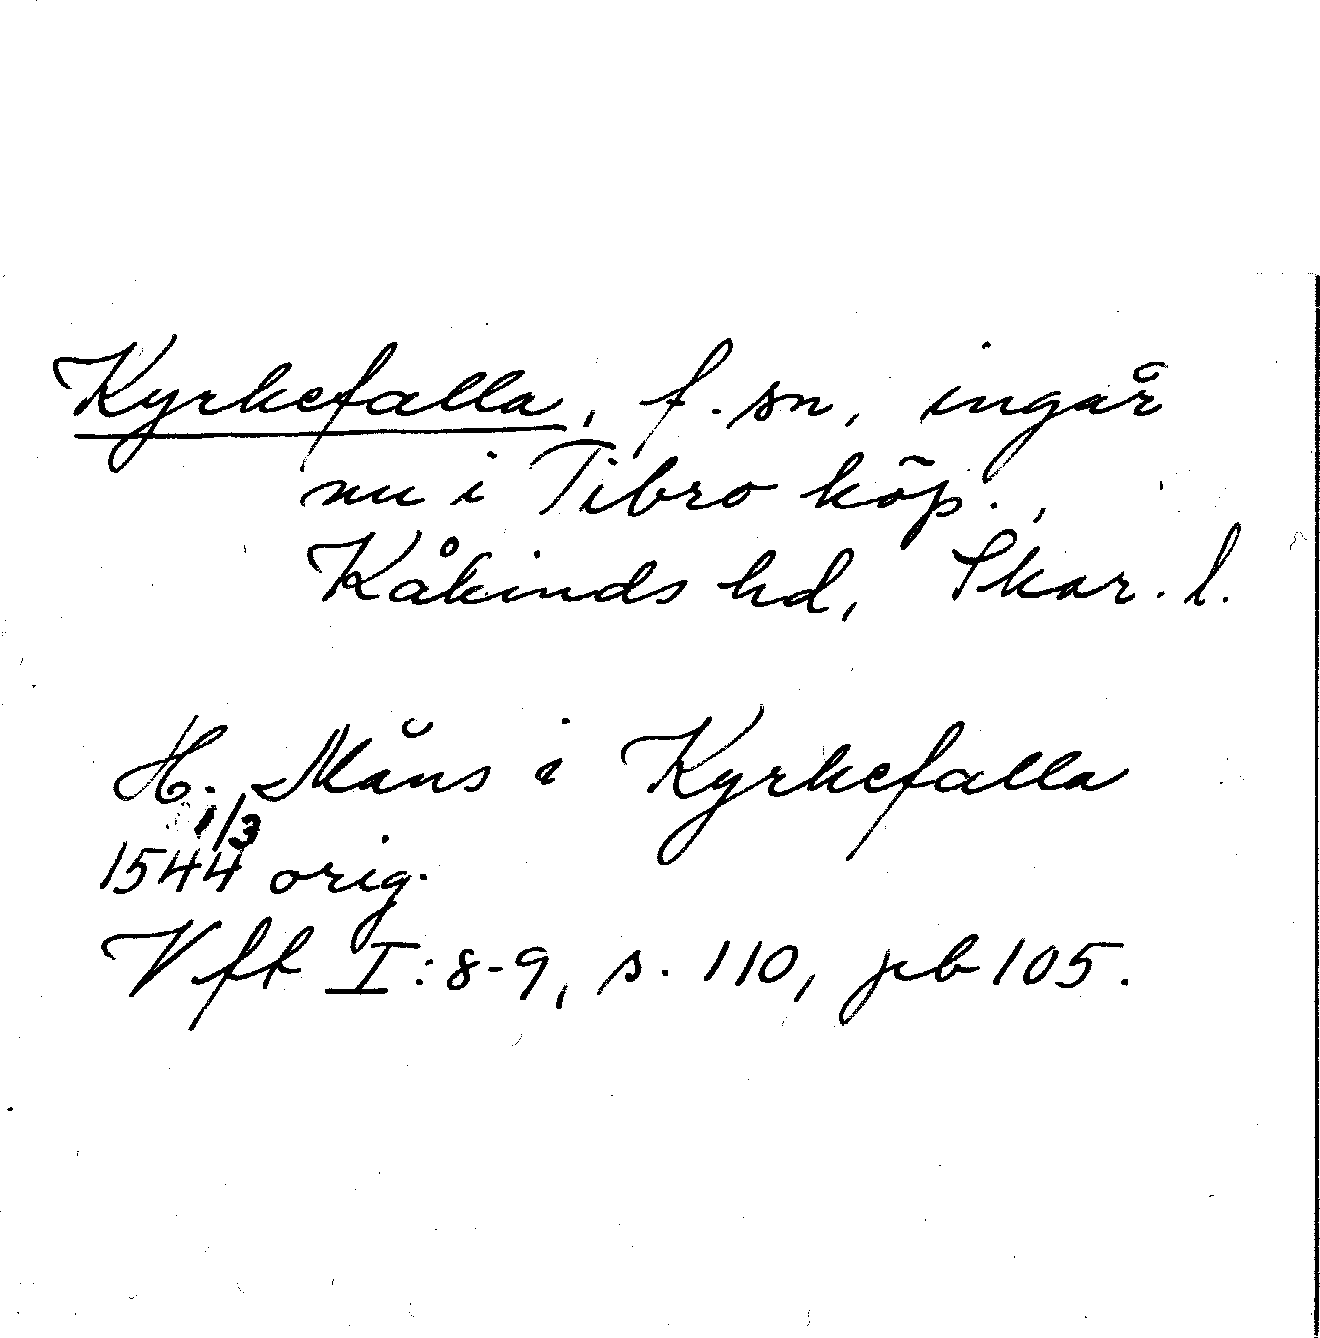 Kyrkefalla, f. sn, ingår
nu i Tibro köp.,
Kåkinds hd, Skar. l.
H. Måns i Kyrkefalla
1/3
1544 orig.
Vft I:8-9, s. 110, pb 105.